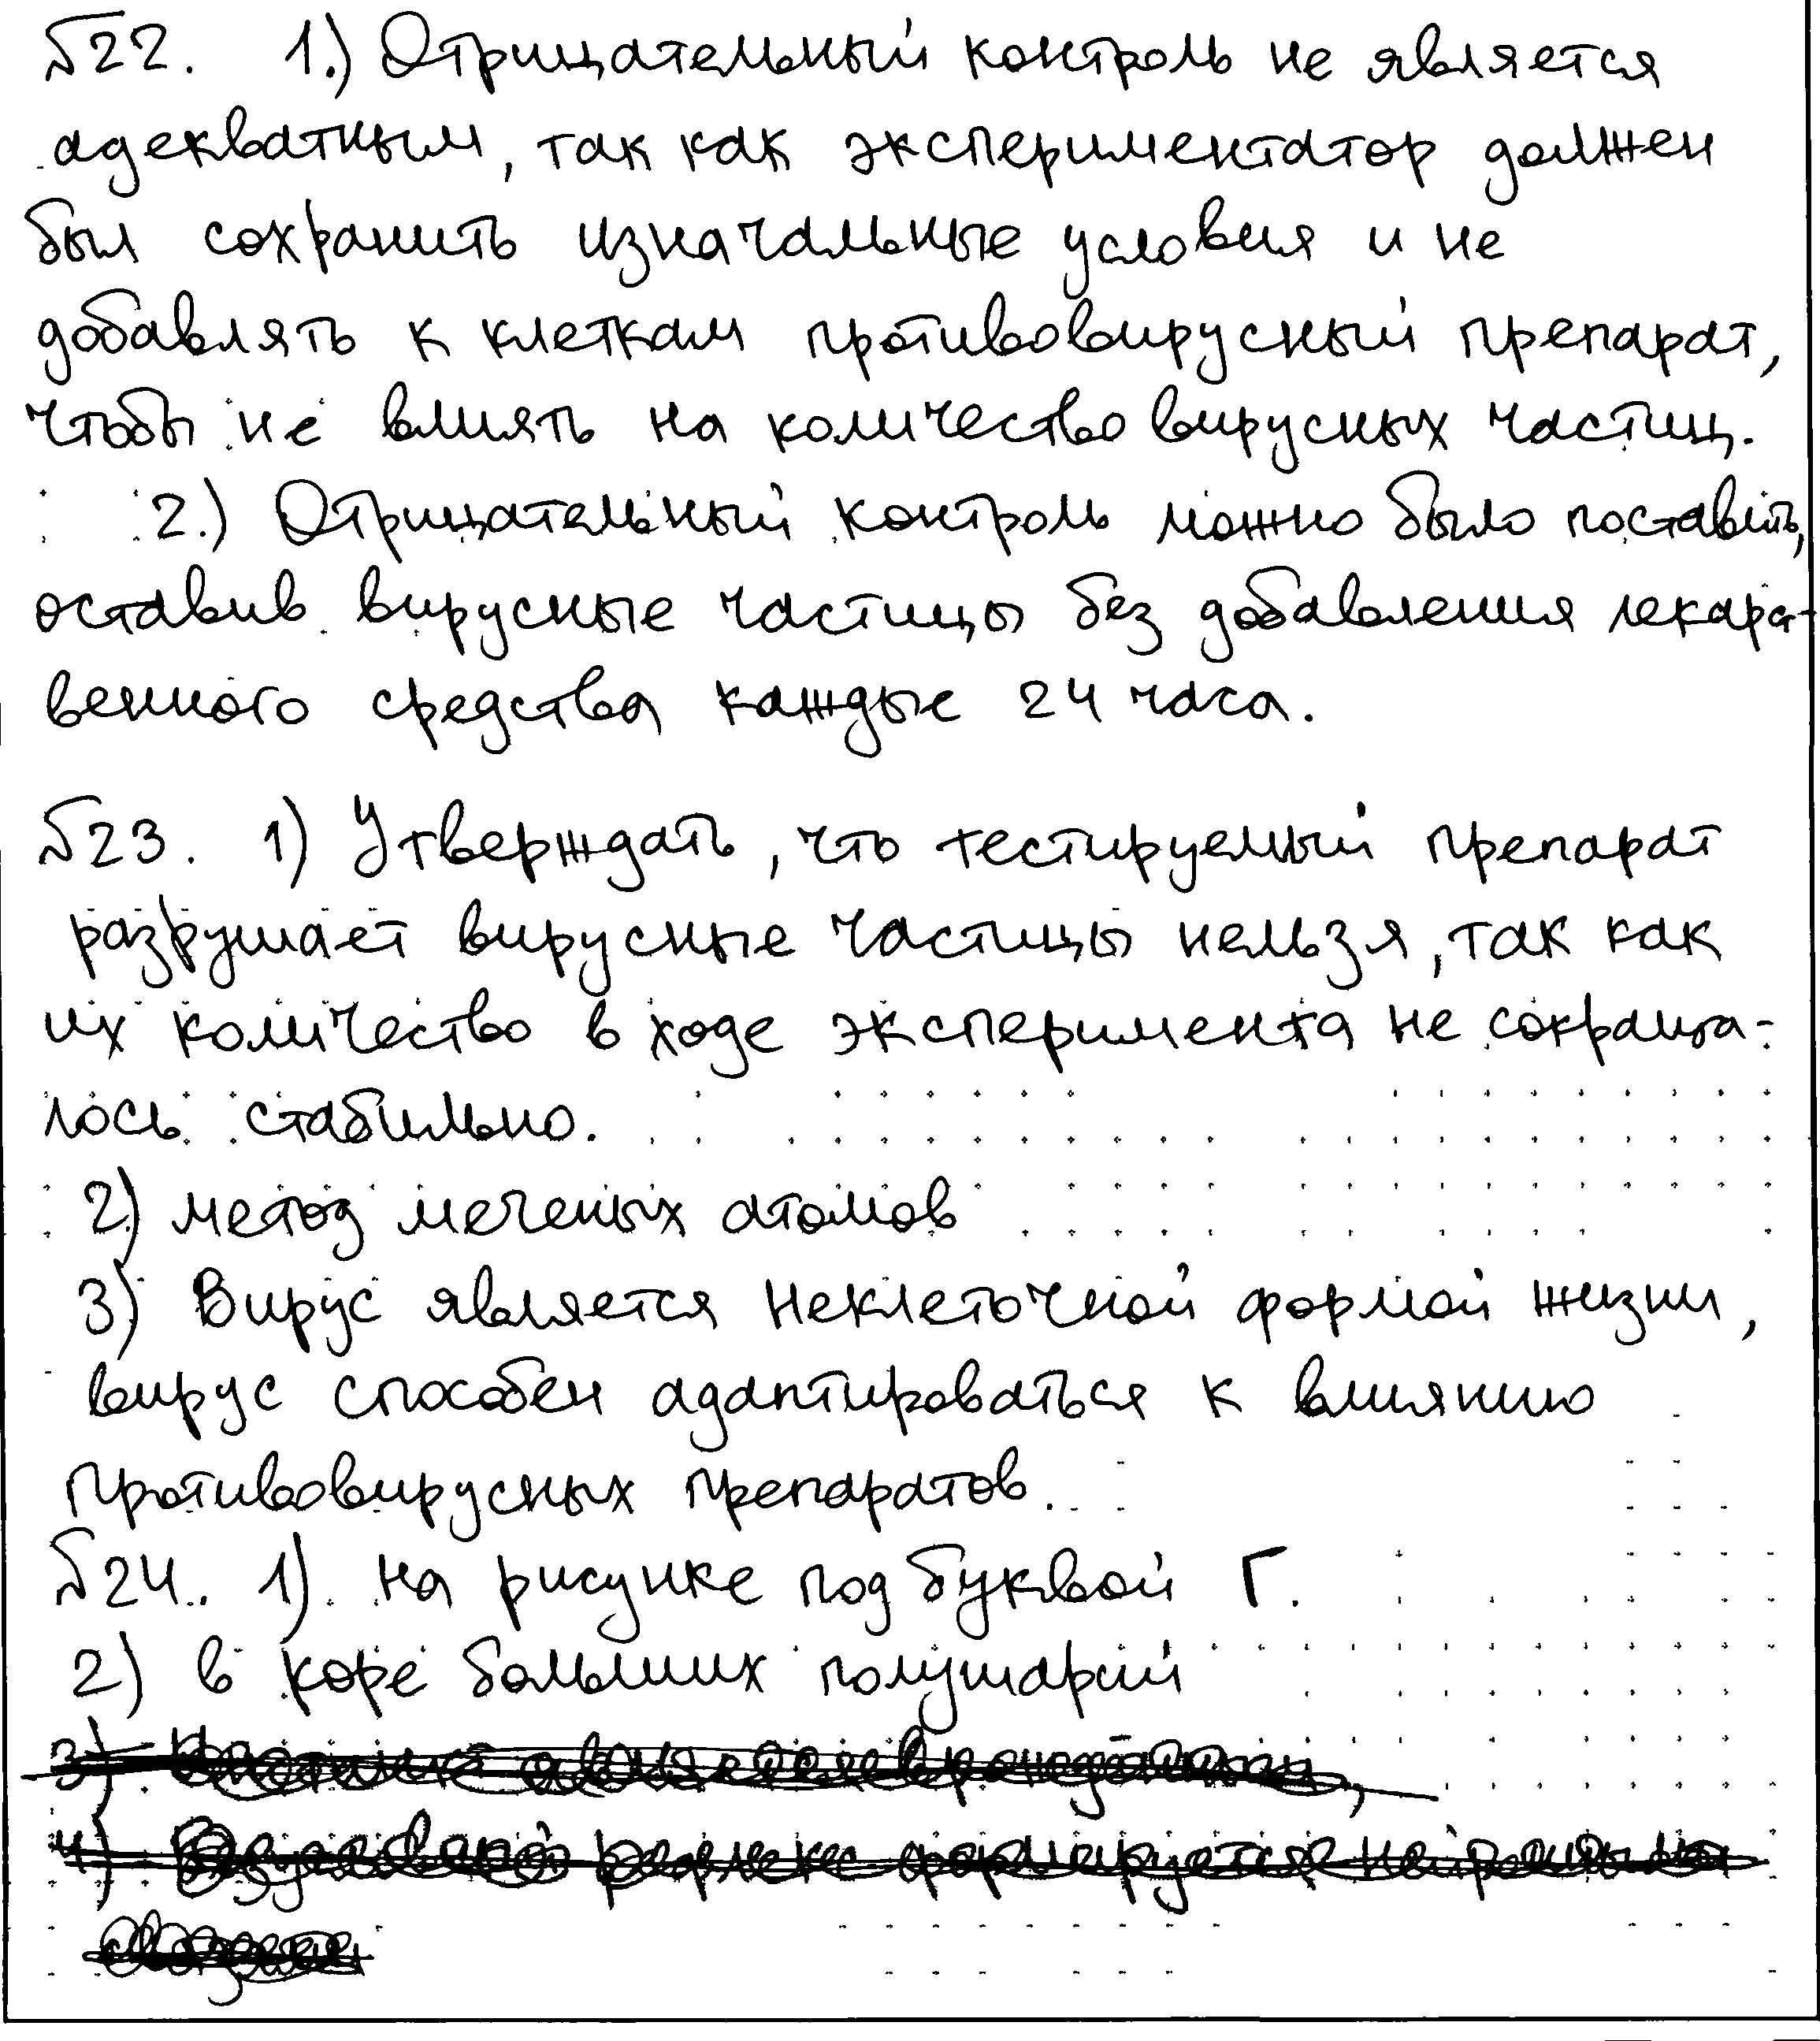 №22. 1.) Отрицательный контроль не является
адекватным, так как экспериментатор должен
был сохранить изначальные условия и не
добавлять к клеткам противовирусный препарат,
чтобы не влиять на количество вирусных частиц.
2.) Отрицательный контроль можно было поставить,
оставив вирусные частицы без добавления лекарст-
венного средства каждые 24 часа.
№23. 1) Утверждать, что тестируемый препарат
разрушает вирусные частицы нельзя, так как
их количество в ходе эксперимента не сокраща-
лось стабильно.
2) метод меченых атомов
3) Вирус является неклеточной формой жизни,
вирус способен адаптироваться к влиянию
противовирусных препаратов.
№24. 1) на рисунке под буквой Г.
2) в коре больших полушарий
3)
4) рефлекс формируется